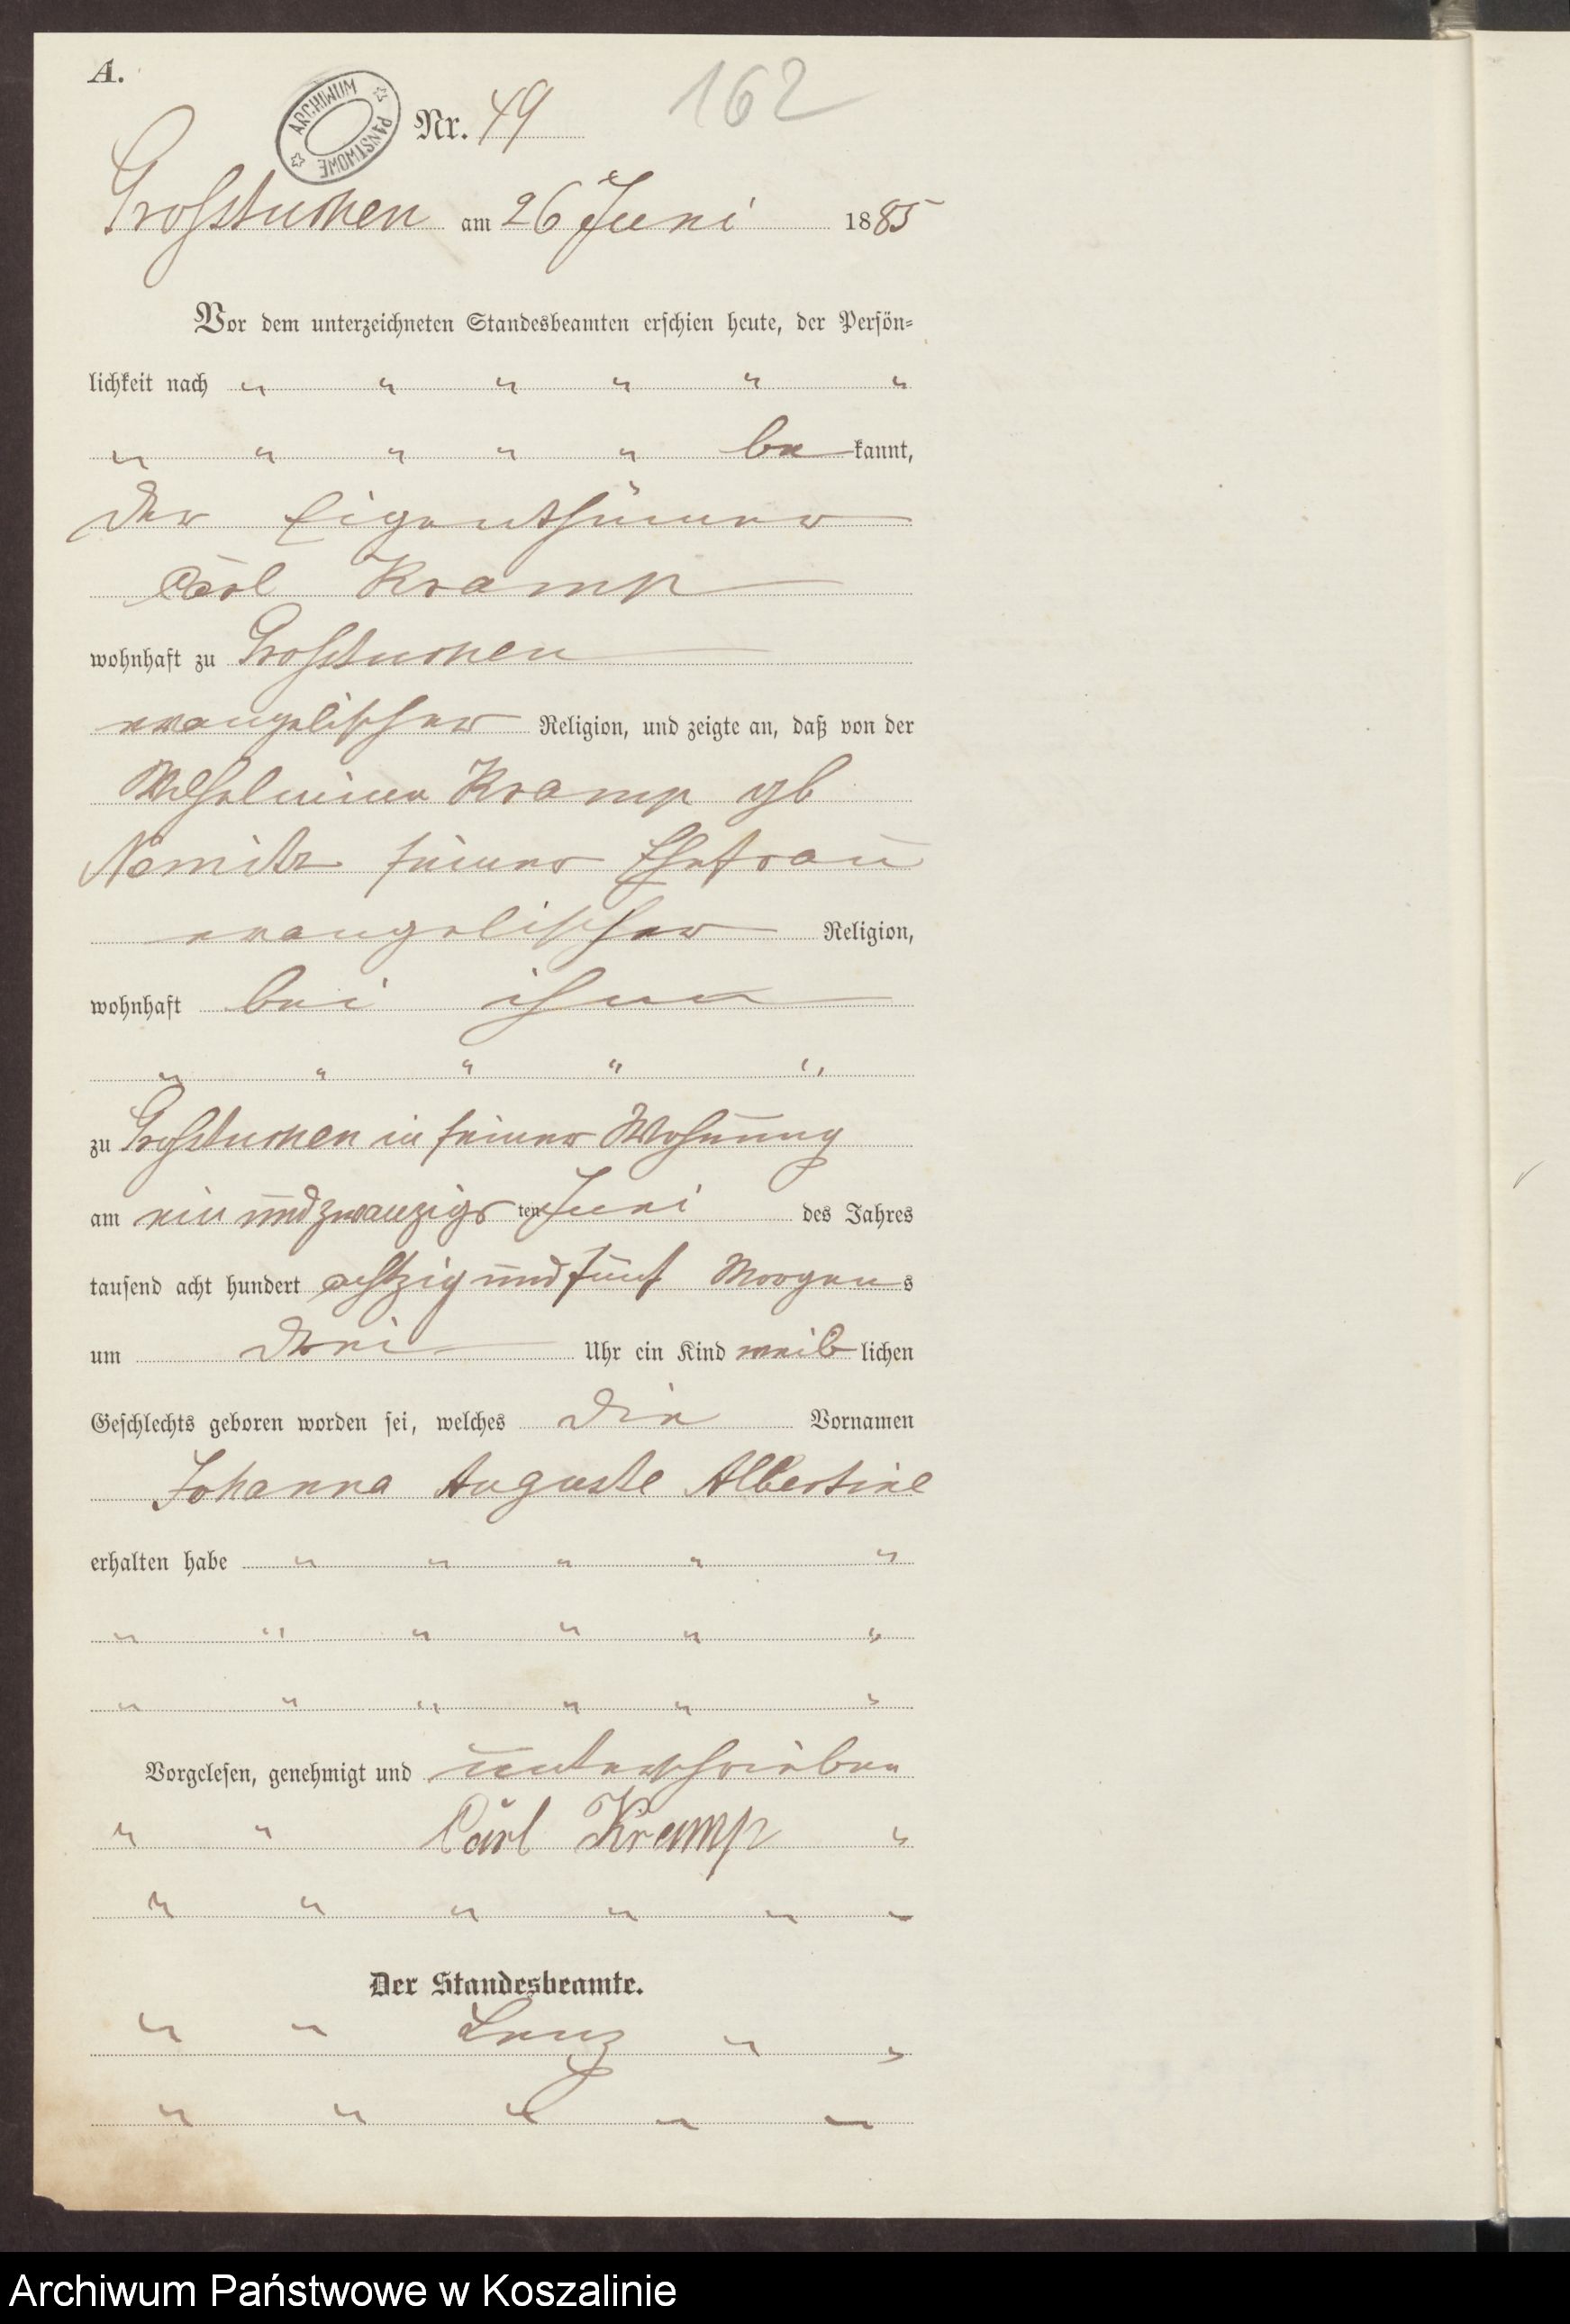 A.
ARCHIWUM PAŃSTWOWE
Nr. 49
162
Grosstuchen am 26 Juni 1885
Vor dem unterzeichneten Standesbeamten erschien heute, der Persön-
lichkeit nach " " " " " "
" " " " " bekannt,
der Eigenthümer
Carl Kramp
wohnhaft zu Grosstuchen
evangelischer Religion, und zeigte an, daß von der
Wilhelmine Kramp gb
Nemitz seiner Ehefrau
evangelischer Religion,
wohnhaft bei ihm
" " " " "
zu Grosstuchen in seiner Wohnung
am ein und zwanzigsten Juni des Jahres
tausend acht hundert achtzig und fünf Morgens
um drei Uhr ein Kind weiblichen
Geschlechts geboren worden sei, welches die Vornamen
Johanna Auguste Albertine
erhalten habe " " " " "
" " " " " "
" " " " " "
Vorgelesen, genehmigt und unterschrieben
" " Carl Kramp "
" " " " " "
Der Standesbeamte.
" " Lenz " "
" " " " "
Archiwum Państwowe w Koszalinie